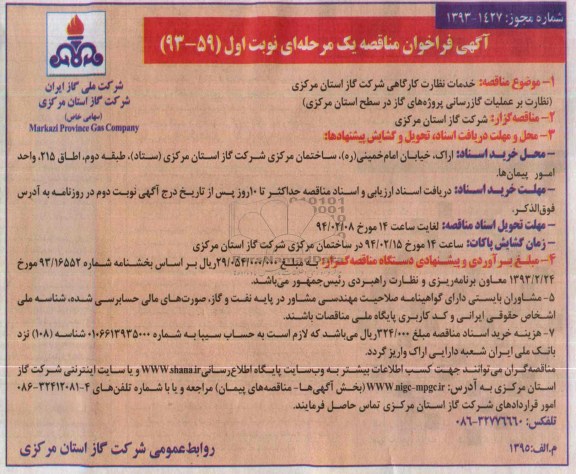 شماره مجوز: ۱۴۲۷-۱۳۹۳
آگهی فراخوان مناقصه یک مرحله‌ای نوبت اول (۵۹-۹۳)
شرکت ملی گاز ایران
شرکت گاز استان مرکزی
(سهامی خاص)
Markazi Province Gas Company
۱- موضوع مناقصه: خدمات نظارت کارگاهی شرکت گاز استان مرکزی
(نظارت بر عملیات گازرسانی پروژه‌های گاز در سطح استان مرکزی)
۲- مناقصه‌گزار: شرکت گاز استان مرکزی
۳- محل و مهلت دریافت اسناد، تحویل و گشایش پیشنهادها:
- محل خرید اسناد: اراک، خیابان امام خمینی(ره)، ساختمان مرکزی شرکت گاز استان مرکزی (ستاد)، طبقه دوم، اطاق ۲۱۵، واحد
امور پیمان‌ها.
- مهلت خرید اسناد: دریافت اسناد ارزیابی و اسناد مناقصه حداکثر تا ۱۰روز پس از تاریخ درج آگهی نوبت دوم در روزنامه به آدرس
فوق‌الذکر.
- مهلت تحویل اسناد مناقصه: لغایت ساعت ۱۴ مورخ ۹۴/۰۲/۰۸
- زمان گشایش پاکات: ساعت ۱۴ مورخ ۹۴/۰۲/۱۵ در ساختمان مرکزی شرکت گاز استان مرکزی
۴- مبلغ برآوردی و پیشنهادی دستگاه مناقصه‌گزار: به مبلغ ۲۹/۰۵۴/۰۰۰/۰۰۰ریال بر اساس بخشنامه شماره ۹۳/۱۶۵۵۲ مورخ
۱۳۹۳/۲/۲۴ معاون برنامه‌ریزی و نظارت راهبردی رئیس‌جمهور می‌باشد.
۵- مشاوران بایستی دارای گواهینامه صلاحیت مهندسی مشاور در پایه نفت و گاز، صورت‌های مالی حسابرسی شده، شناسه ملی
اشخاص حقوقی ایرانی و کد کاربری پایگاه ملی مناقصات باشند.
۷- هزینه خرید اسناد مناقصه مبلغ ۳۲۴/۰۰۰ریال می‌باشد که لازم است به حساب سیبا به شماره ۰۱۰۶۶۱۳۹۳۵۰۰۰ شناسه (۱۰۸) نزد
بانک ملی ایران شعبه دارایی اراک واریز گردد.
مناقصه‌گران می‌توانند جهت کسب اطلاعات بیشتر به وب‌سایت پایگاه اطلاع‌رسانی WWW.shana.ir و یا سایت اینترنتی شرکت گاز
استان مرکزی به آدرس: WWW.nigc-mpgc.ir (بخش آگهی‌ها- مناقصه‌های پیمان) مراجعه و یا با شماره تلفن‌های ۴-۳۲۴۱۲۰۸۱-۰۸۶
امور قراردادهای شرکت گاز استان مرکزی تماس حاصل فرمایند.
تلفکس: ۳۲۷۷۶۶۶۰-۰۸۶
م.الف: ۱۳۹۵
روابط عمومی شرکت گاز استان مرکزی